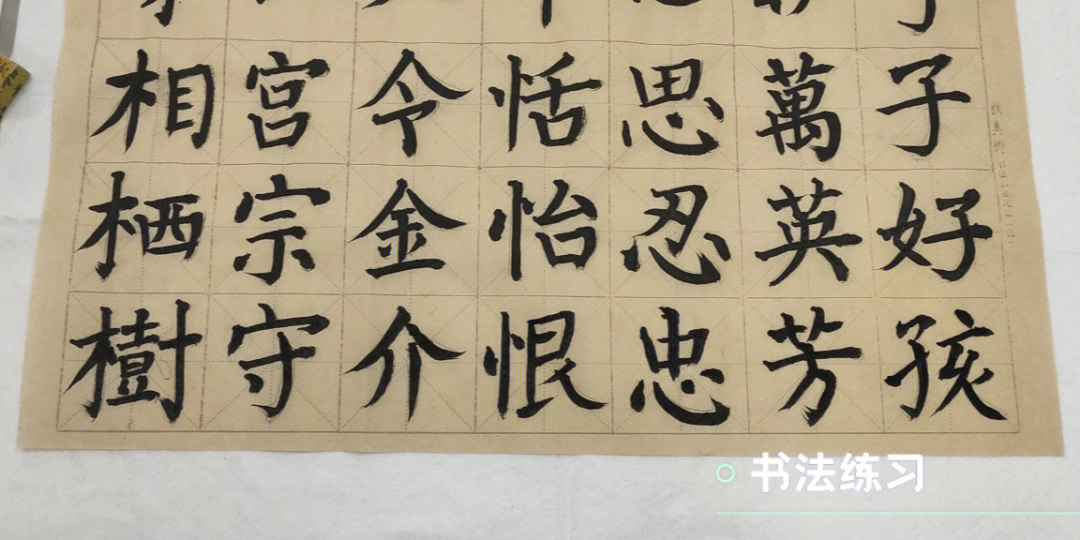 子好孩
萬英芳
思忍忠
恬怡恨
令金介
宮宗守
相栖樹
书法练习